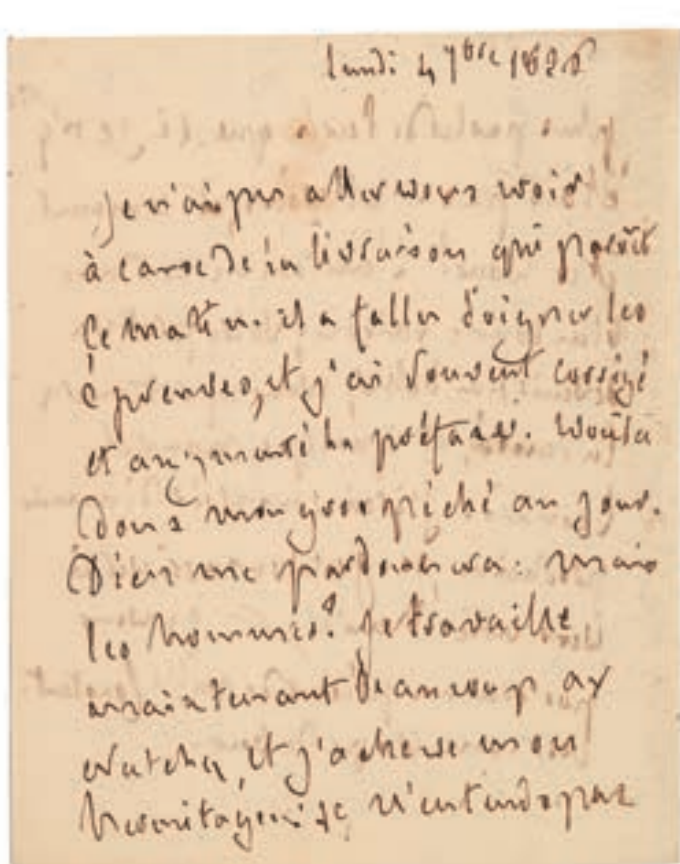 lundi 4 7bre 1826
je n'ai pu aller vous voir
à cause de la livraison qui paroît
ce matin. il a fallu soigner les
épreuves, et j'ai souvent corrigé
et augmenté la préface. voilà
donc mon gros péché au jour.
Dieu me pardonnera: mais
les hommes? je travaille
maintenant beaucoup aux
natchez, et j'acheve mon
hermitage: je n'entends pas